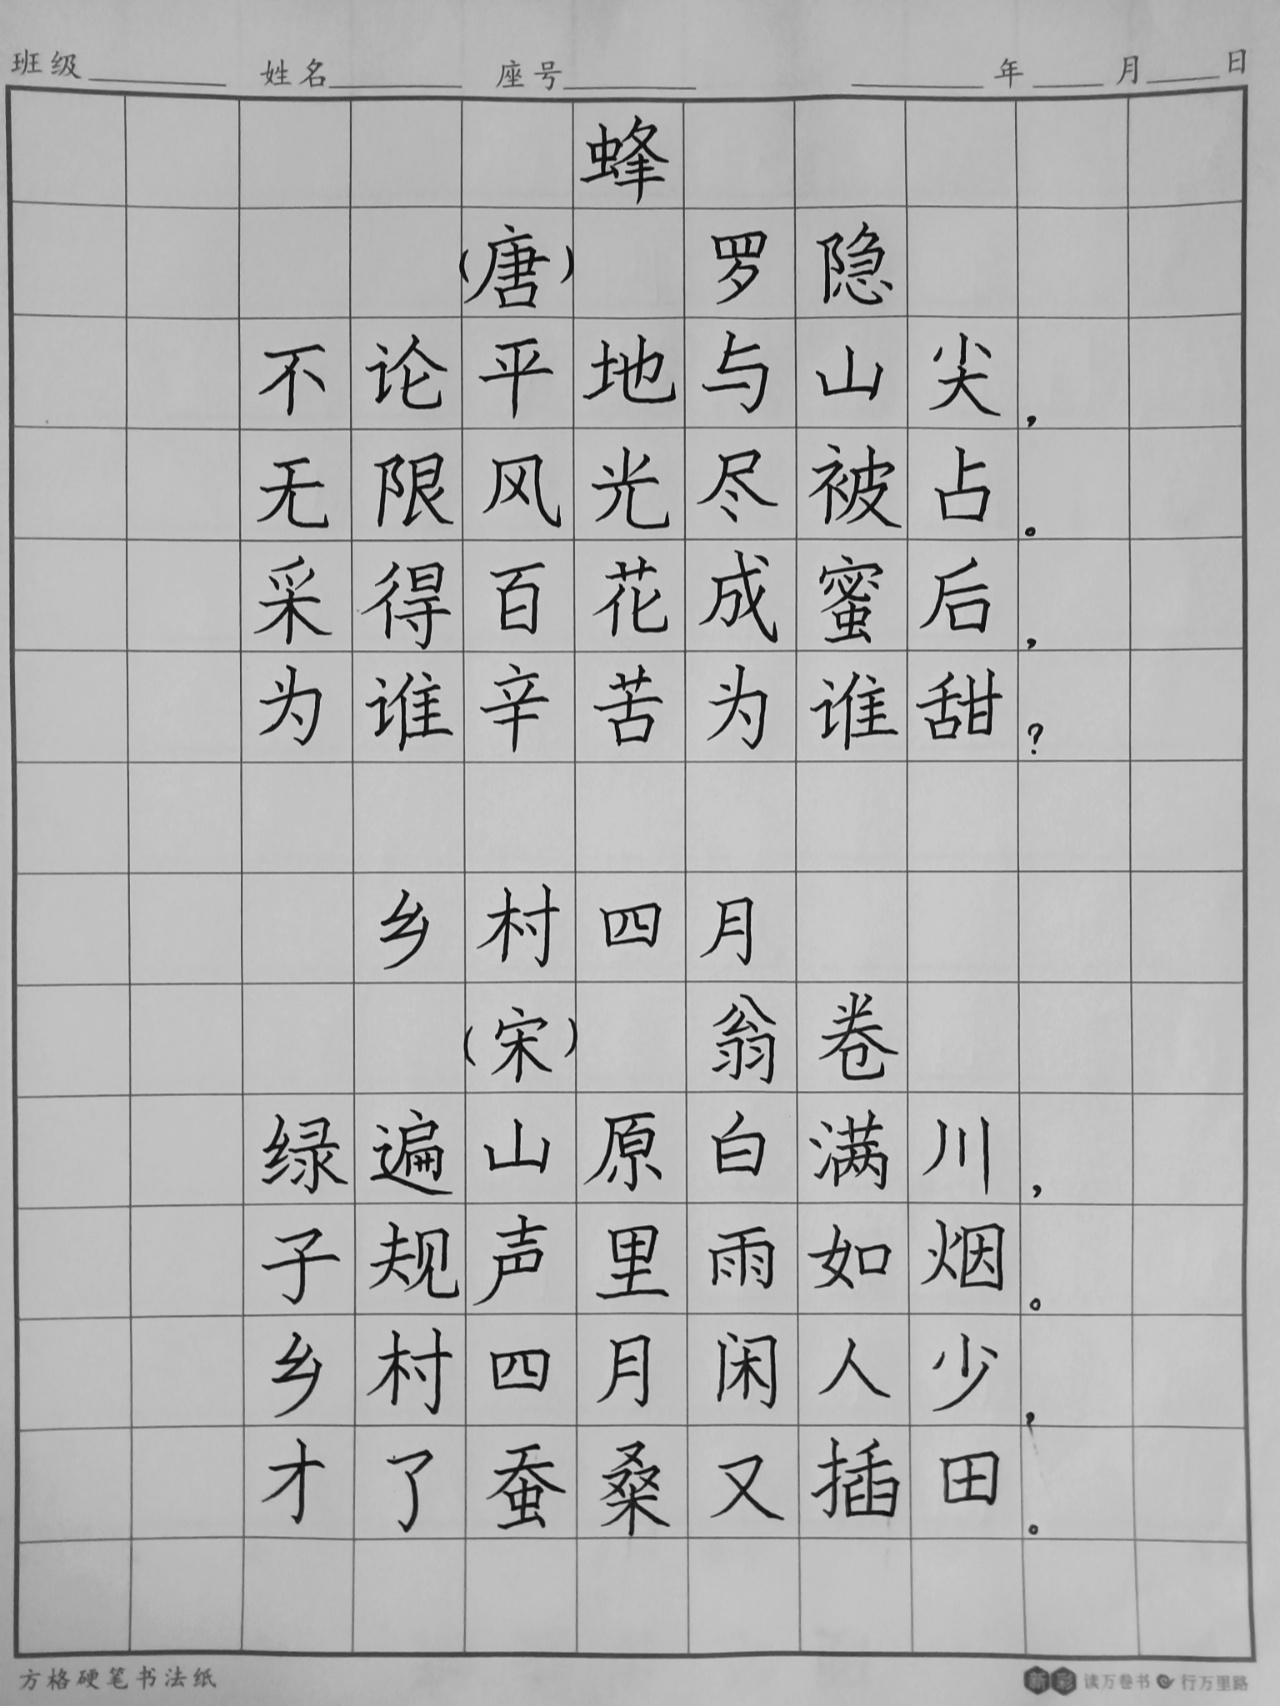 班级 姓名 座号 年 月 日
蜂
(唐) 罗隐
不论平地与山尖，
无限风光尽被占。
采得百花成蜜后，
为谁辛苦为谁甜？
乡村四月
(宋) 翁卷
绿遍山原白满川，
子规声里雨如烟。
乡村四月闲人少，
才了蚕桑又插田。
方格硬笔书法纸 新彩 读万卷书 行万里路